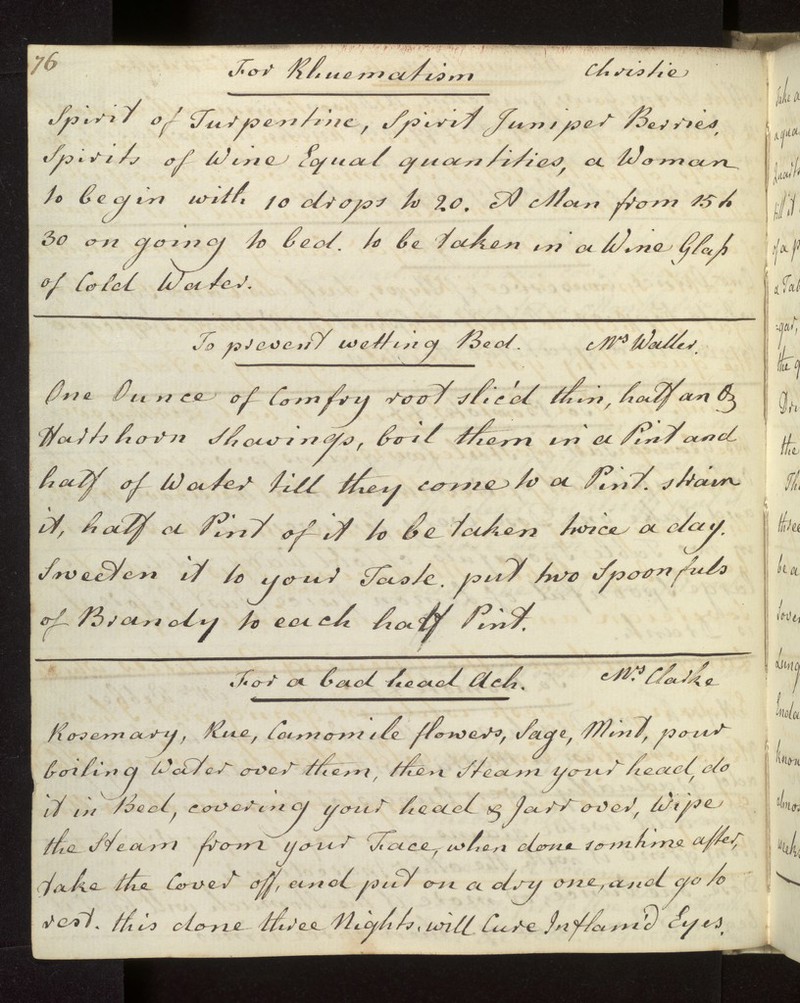 76
For Rhuematism Christie
Spirit of Turpentine, Spirit Juniper Berries,
Spirits of Wine Equal quantities, a Woman
to begin with 10 drops to 20. A Man from 15 to
30 on going to bed. to be taken in a Wine Glaſs
of Cold Water.
To prevent wetting Bed. Mrs Waller.
One Ounce of Comfry root slic'd thin, half an ℥
Hartshorn shavings, boil them in a Pint and
half of Water till they come to a Pint. strain
it, half a Pint of it to be taken twice a day.
Sweeten it to your Taste. put two Spoonfuls
of Brandy to each half Pint.
For a bad head Ach. Mrs. Clarke
Rosemary, Rue, Camomile flowers, Sage, Mint, pour
boiling Water over them, then Steam your head, do
it in Bed, covering your head & Jarr over, Wipe
the Steam from your Face, when done somtime after,
take the Cover off, and put on a dry one, and go to
rest. this done three Nights, will Cure Inflam'd Eyes.